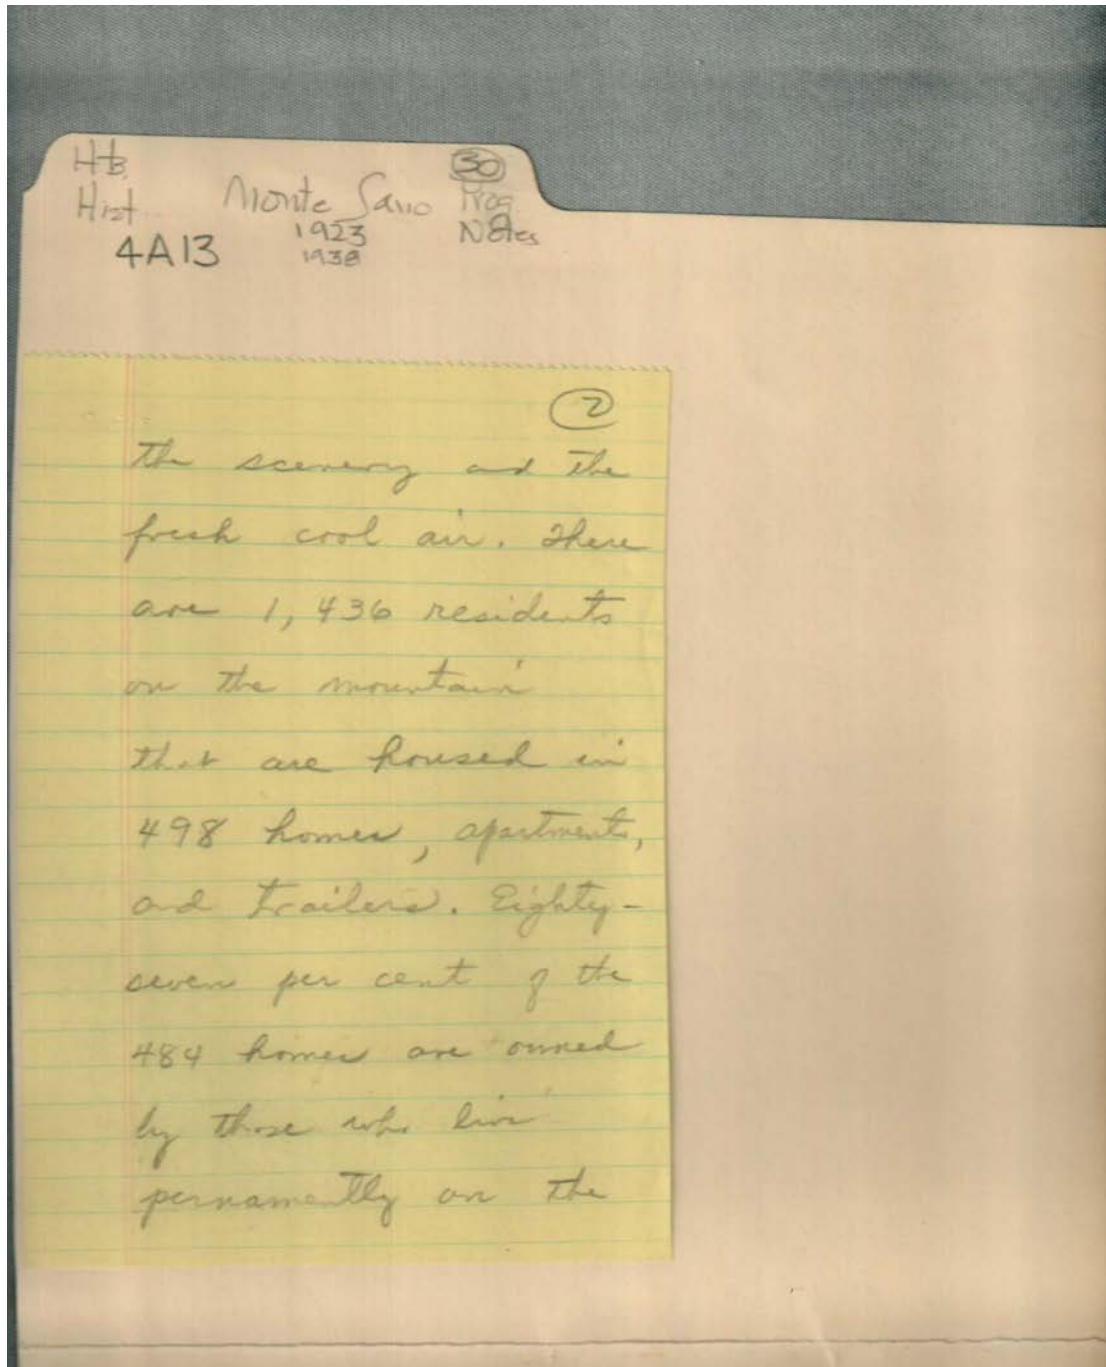 Hts, Monte Sano 30 Prog
Hist 1923 Notes
4A13 1938
2
the scenery and the
fresh cool air. There
are 1,436 residents
on the mountain
that are housed in
498 homes, apartments,
and trailers. Eighty-
seven per cent of the
484 homes are owned
by those who live
pernamently on the